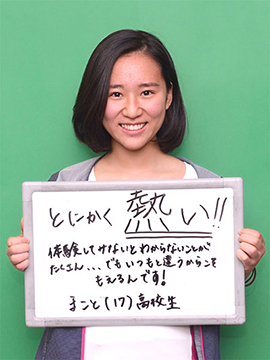 とにかく 熱い!!
体験してみないとわからないことが
たくさん...でもいつもと違うからこそ
もえるんです!
まこと(17)高校生